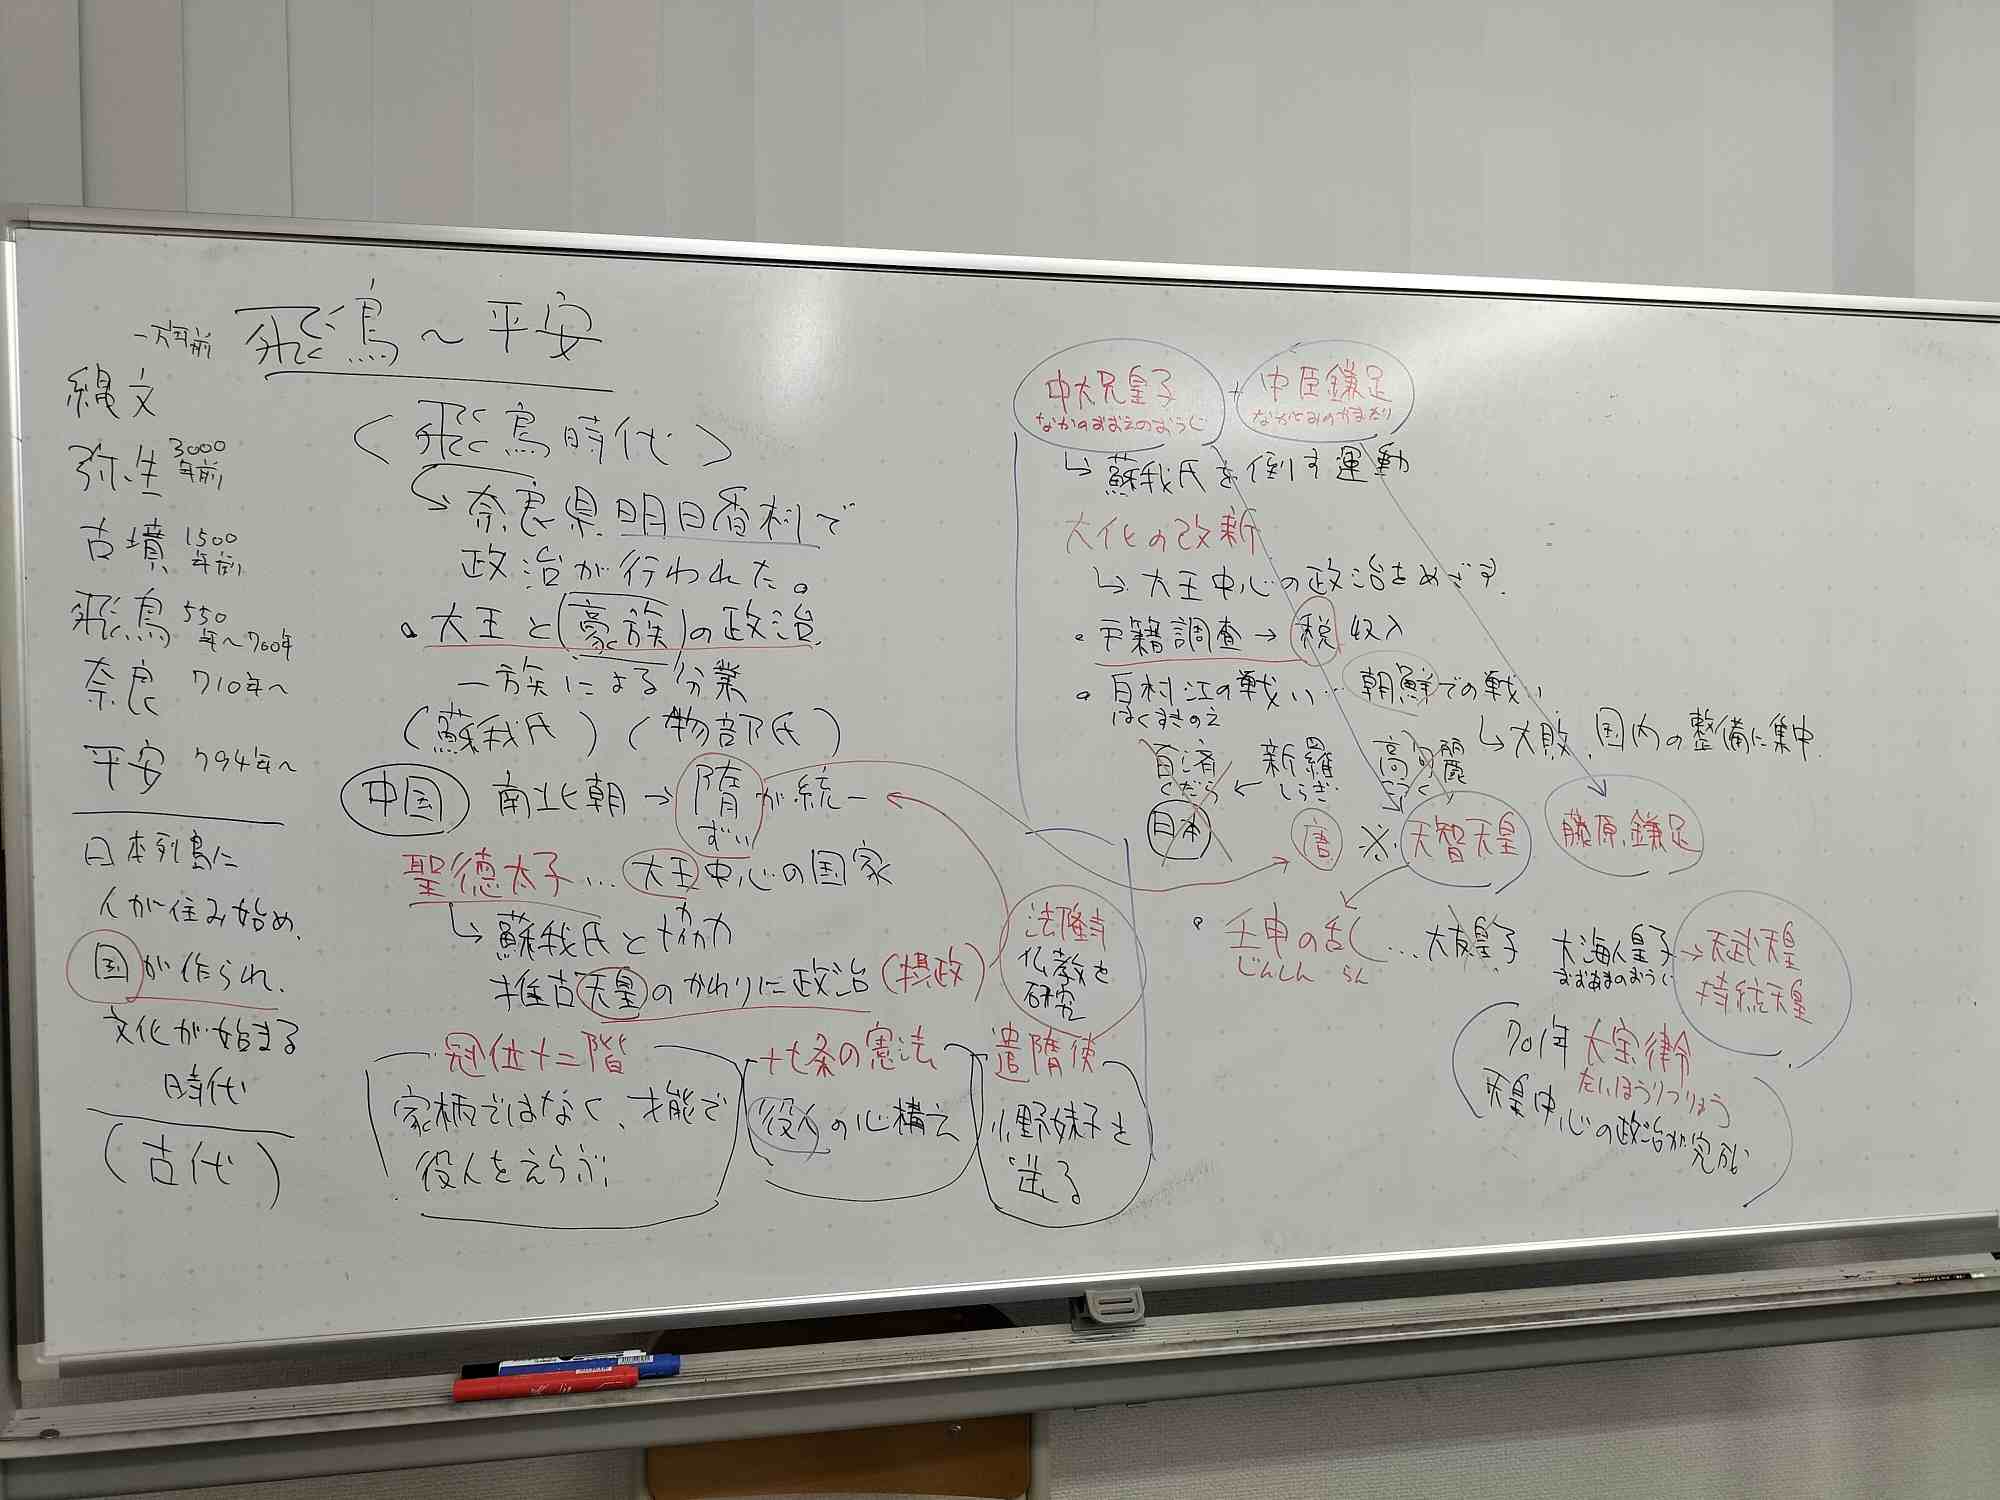 飛鳥～平安
一万年前
縄文
弥生 3000年前
古墳 1500年前
飛鳥 550年～700年
奈良 710年～
平安 794年～
日本列島に
人が住み始め、
国が作られ、
文化が始まる
時代
(古代)
〈飛鳥時代〉
↳奈良県明日香村で
政治が行われた。
・大王と(豪族)の政治
一族による分業
(蘇我氏)(物部氏)
中国 南北朝→隋が統一
ずい
聖徳太子…大王中心の国家
↳蘇我氏と協力
推古天皇のかわりに政治(摂政)
冠位十二階
家柄ではなく、才能で
役人をえらぶ
十七条の憲法
役人の心構え
遣隋使
小野妹子を
送る
法隆寺
仏教を
研究
中大兄皇子 + 中臣鎌足
なかのおおえのおうじ なかとみのかまたり
↳蘇我氏を倒す運動
大化の改新
↳大王中心の政治をめざす
・戸籍調査→税収入
・白村江の戦い…朝鮮での戦い
はくすきのえ
↳大敗、国内の整備に集中
百済 ← 新羅 高句麗
くだら しらぎ こうくり
日本 唐 ※天智天皇 藤原鎌足
・壬申の乱…大友皇子 大海人皇子→天武天皇
じんしん らん おおあまのおうじ
持統天皇
701年 大宝律令
たいほうりつりょう
天皇中心の政治が完成